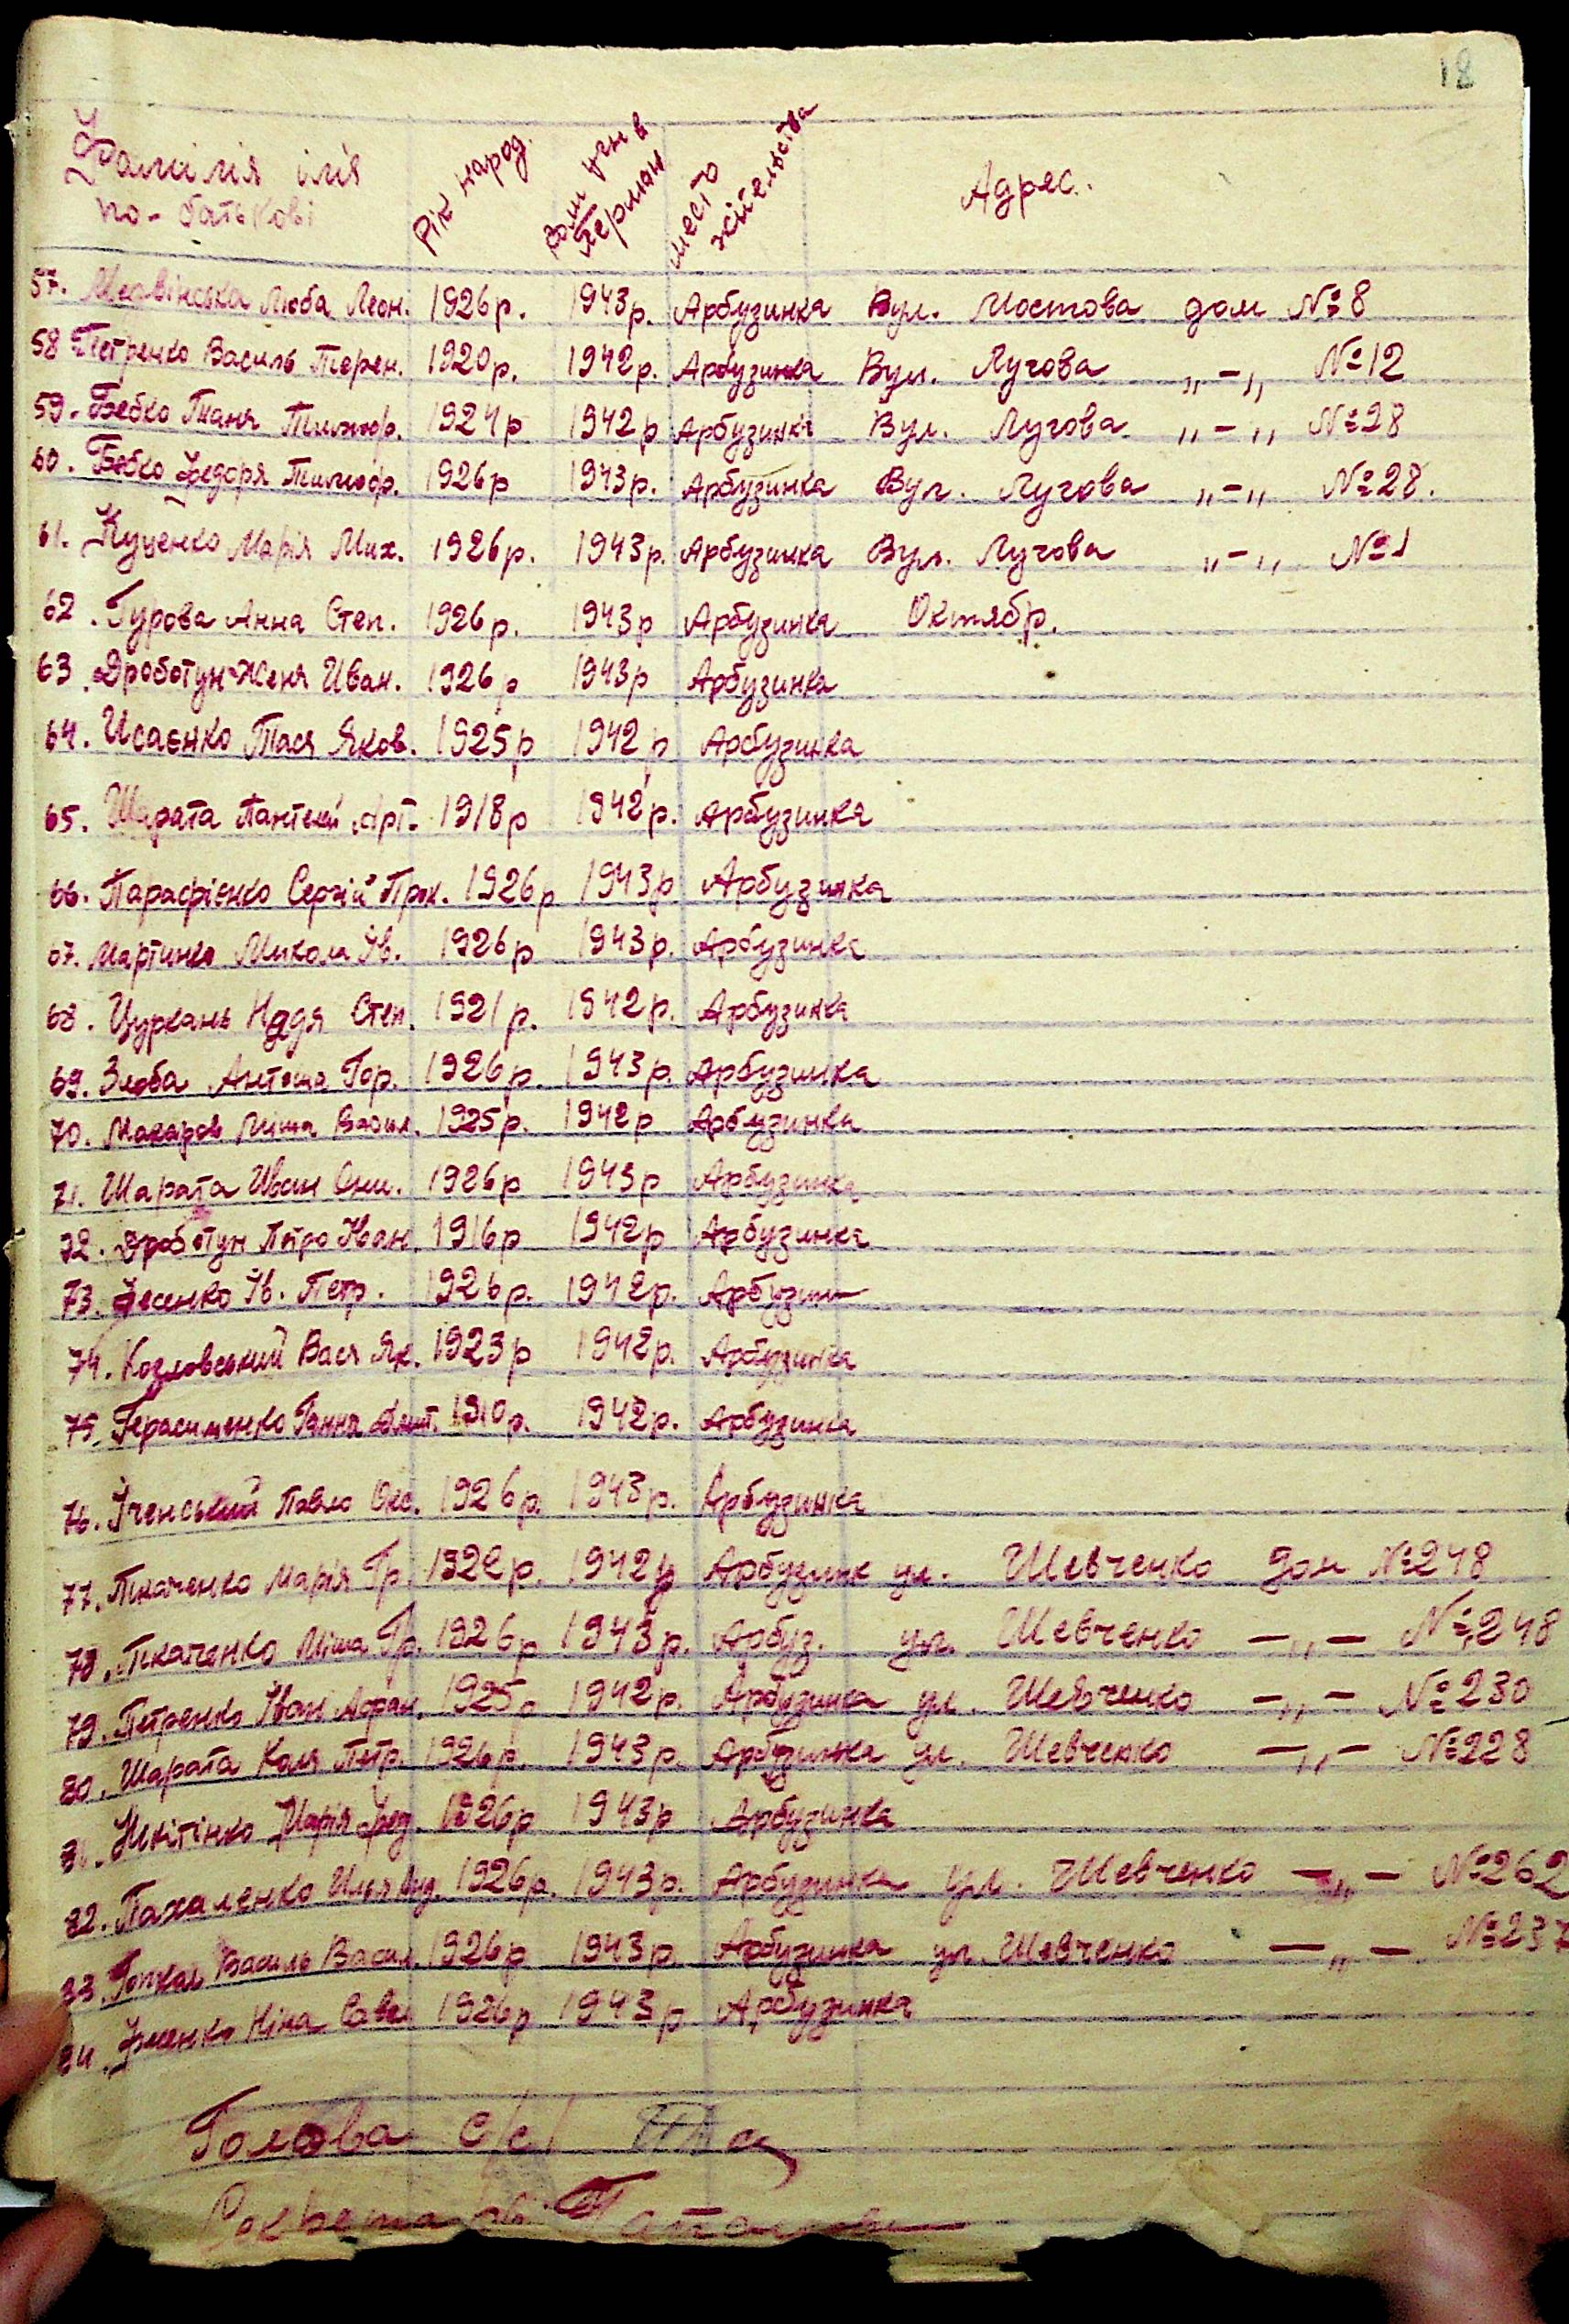 18
Фамілія імя
по-батькові
Рік народ.
угн в
Герман
место
жітельства
Адрес.
57. Люба Леон. 1926р. 1943р. Арбузинка Вул. Мостова дом №8
58 Петренко Василь Терен. 1920р. 1942р. Арбузинка Вул. Лугова „-„ №12
59. Бебко Таня Тимоф. 1924р 1942р Арбузинка Вул. Лугова „-„ №28
60. Бебко Федоря Тимоф. 1926р 1943р. Арбузинка Вул. Лугова „-„ №28.
61. Куценко Марія Мих. 1926р. 1943р. Арбузинка Вул. Лугова „-„ №1
62. Гурова Анна Степ. 1926р. 1943р Арбузинка Октябр.
63. Дроботун Женя Иван. 1926р 1943р Арбузинка
64. Исаєнко Тася Яков. 1925р 1942р Арбузинка
65. Шарата Пантелей Арт. 1918р 1942р. Арбузинка
66. Парафієнко Сергій Прок. 1926р 1943р Арбузинка
67. Мартинко Микола Ів. 1926р 1943р. Арбузинка
68. Цуркань Надя Степ. 1921р. 1942р. Арбузинка
69. Злоба Антоша Гор. 1926р. 1943р. Арбузинка
70. Макаров Міша Васил. 1925р. 1942р Арбузинка
71. Шарата Иван 1926р 1943р Арбузинка
72. Дроботун Петро Іван. 1916р 1942р Арбузинка
73. Ів. Петр. 1926р. 1942р. Арбузин
74. Козловський Вася Як. 1923р 1942р. Арбузинка
75. Герасименко Ганна Дмит. 1910р. 1942р. Арбузинка
76. Павло 1926р. 1943р. Арбузинка
77. Ткаченко Марія Гр. 1922р. 1942р Арбузинк ул. Шевченко дом №248
78. Ткаченко Міша Гр. 1926р 1943р. Арбуз. ул. Шевченко —„— №248
79. Петренко Іван Афан. 1925р 1942р. Арбузинка ул. Шевченко —„— №230
80. Шарата Коля Петр. 1926р. 1943р. Арбузинка ул. Шевченко —„— №228
81. Нікітінко Марія Фед. 1926р 1943р Арбузинка
82. Пахаленко Илья 1926р. 1943р. Арбузинка ул. Шевченко —„— №262
83. Василь Васил. 1926р 1943р. Арбузинка ул. Шевченко —„— №237
84. Ніна Савел 1926р 1943р Арбузинка
Голова с/с
Секретарь